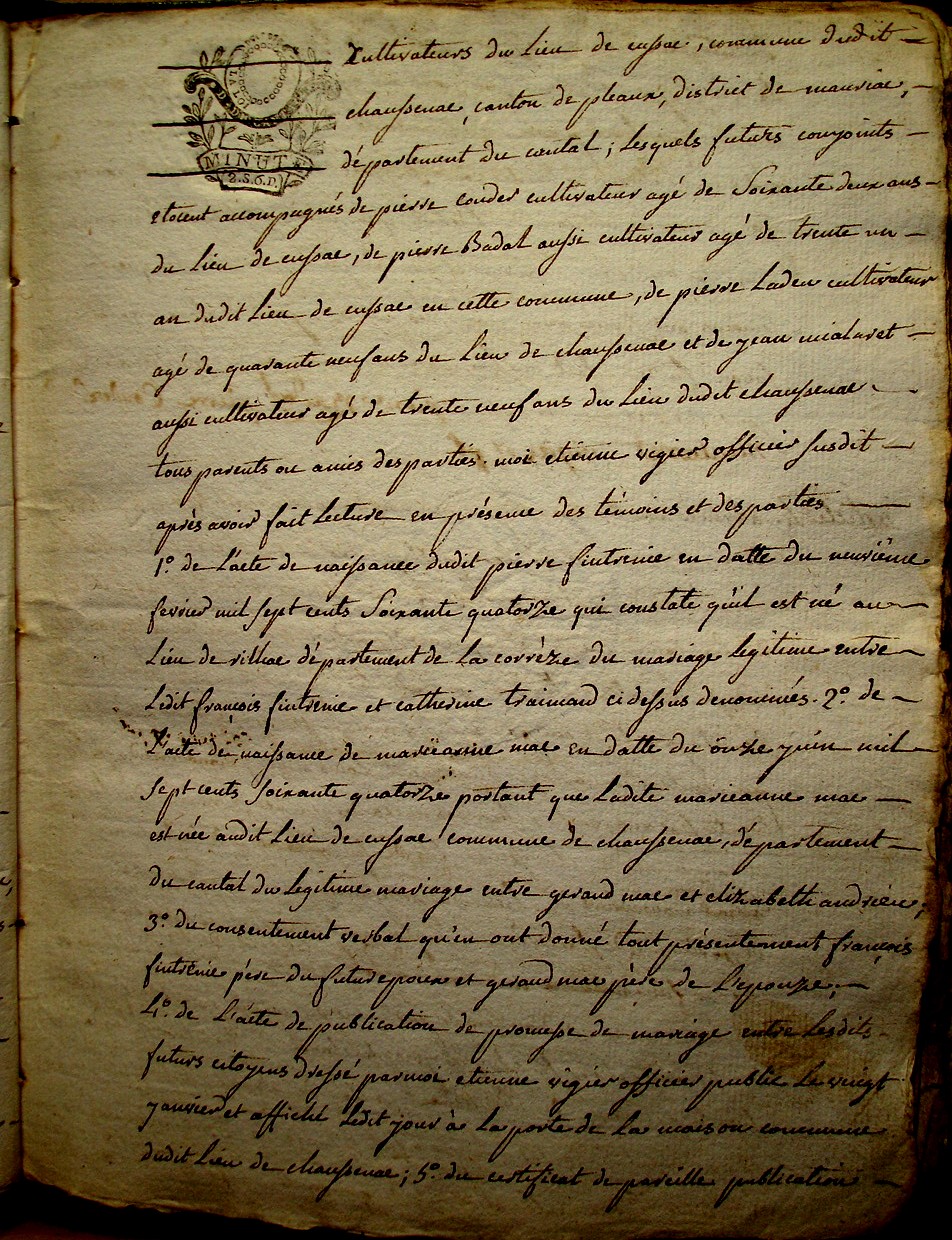 LA LOI
MINUTE
2.S.6.D.
Cultivateurs du Lieu de cussac, commune dudit
chaussenac, canton de pleaux, district de mauriac,
département du cantal; Lesquels futurs conjoints
etoient accompagnés de pierre couder cultivateur agé de Soixante deux ans
du Lieu de cussac, de pierre Badal aussi cultivateur agé de trente un
an dudit Lieu de cussac en cette commune, de pierre Laden cultivateur
agé de quarante neuf ans du Lieu de chaussenac et de jean mialaret
aussi cultivateur agé de trente neuf ans du Lieu dudit chaussenac
tous parents ou amis des parties. moi etienne vigier officier susdit
après avoir fait Lecture en présence des témoins et des parties
1º. de L'acte de naissance dudit pierre fintrenie en datte du neuvième
fevrier mil sept cents Soixante quatorze qui constate qu'il est né au
Lieu de rilhac département de La corrèze du mariage legitime entre
Ledit françois fintrenie et catherine traimand ci dessus denommés. 2º. de
L'acte de naissance de marieanne mac en datte du onze juin mil
sept cents soixante quatorze portant que Ladite marieanne mac
est née audit Lieu de cussac commune de chaussenac, département
du cantal du Legitime mariage entre gerand mac et elizabeth andrieu;
3º. du consentement verbal qu'en ont donné tout présentement françois
fintrenie père du futur epoux et gerand mac père de L'epouze;
4º. de L'acte de publication de promesse de mariage entre Lesdits
futurs citoyens dressé par moi etienne vigier officier public Le vingt
janvier et affiché Ledit jour à La porte de La maison commune
dudit Lieu de chaussenac; 5º. du certificat de pareille publication